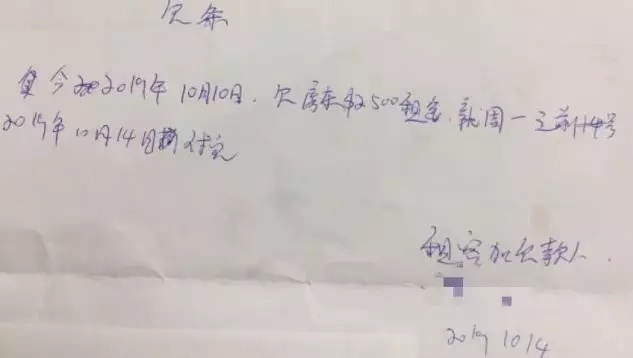 欠条
今2019年10月10日.欠房东 500租金.  周一之前
2019年10月14日 付完
租客加欠款人.
2019 10 4